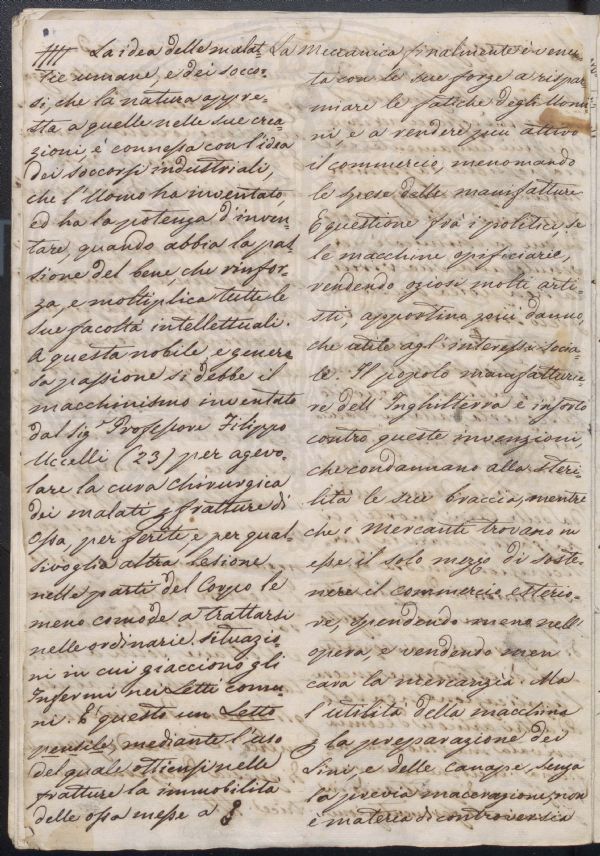 La idea delle malat-
tie umane, e dei soccor-
si, che la natura appre-
sta a quelle nelle sue crea-
zioni, è connessa con l'idea
dei soccorsi industriali,
che l'Uomo ha inventato
ed ha la potenza d'inven-
tare, quando abbia la pas-
sione del bene, che rinfor-
za, e moltiplica tutte le
sue facoltà intellettuali.
A questa nobile, e genero
sa passione si debbe il
macchinismo inventato
dal Sig.r Professore Filippo
Uccelli (23) per agevo-
lare la cura chirurgica
dei malati p fratture di
Ossa, per ferite, e per qual-
sivoglia altra lesione
nelle parti del Corpo le
meno comode a trattarsi
nelle ordinarie situazio-
ni in cui giacciono gli
Infermi nei Letti comu-
ni. È questo un Letto
pensile, mediante l'uso
del quale ottiensi nelle
fratture la immobilità
delle ossa messe a
La Meccanica finalmente è venu-
ta con le sue forze a rispar
miare le fatiche degli Uomi
ni, e a rendere più attivo
il commercio, menomando
le spese delle manifatture.
È questione frà i politici se
le macchine opificiarie,
rendendo oziosi molti arti-
sti, apportino più danno,
che utile agl'interessi socia-
le. Il popolo manifatturie
re dell'Inghilterra è insorto
contro queste invenzioni,
che condannano alla steri-
lità le sue braccia, mentre
che i Mercanti trovano in
esse il solo mezzo di soste-
nere il commercio esterio-
re, spendendo meno nell'
opera, e vendendo men
cara la mercanzia. Ma
l'utilità della macchina
p la preparazione dei
Lini, e delle Canape, senza
la previa macerazione, non
è materia di controversia